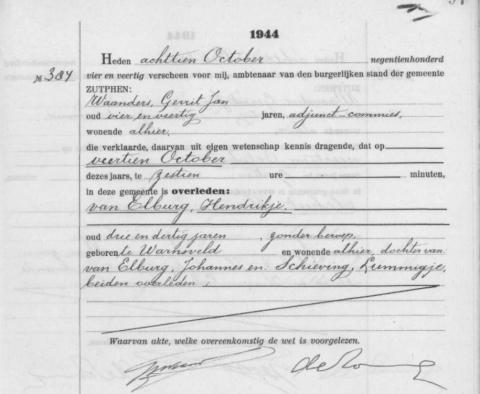 1944
Heden achttien October negentienhonderd
No 384 vier en veertig verscheen voor mij, ambtenaar van den burgerlijken stand der gemeente
ZUTPHEN:
Waanders, Gerrit Jan
oud vier en veertig jaren, adjunct-commies,
wonende alhier,
die verklaarde, daarvan uit eigen wetenschap kennis dragende, dat op
veertien October
dezes jaars, te zestien ure minuten,
in deze gemeente is overleden:
van Elburg, Hendrikje.
oud drie en dertig jaren, zonder beroep,
geboren te Warnsveld en wonende alhier, dochter van
van Elburg, Johannes en Schieving, Lummigje,
beiden overleden,
Waarvan akte, welke overeenkomstig de wet is voorgelezen.